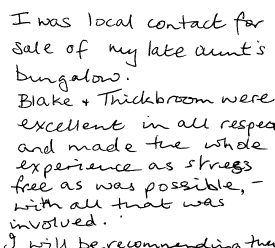 I was local contact for
sale of my late aunt's
bungalow.
Blake + Thickbroom were
excellent in all respec
and made the whole
experience as stress
free as was possible, -
with all that was
involved.
I will be recommending the